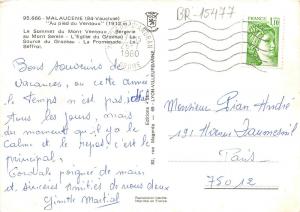 BR-15477
95.666 - MALAUCENE (84-Vaucluse)
"Au pied du Ventoux" (1912 m)
Le Sommet du Mont Ventoux - Bergerie
du Mont Serein - L'Eglise du Groseau - La
Source du Groseau - La Promenade - Le
Beffroi.
1980
1,10
Bons souvenirs de
vacances, où cette année
le temps n'est pas idéal
tous les jours, mais
du moment qu'il y a le
Calme et le repos c'est le
principal,
Cordiale poignée de main
et sincères amitiés de nous deux
Martial
Monsieur Pian André
191 Avenue Daumesnil
Paris
75012